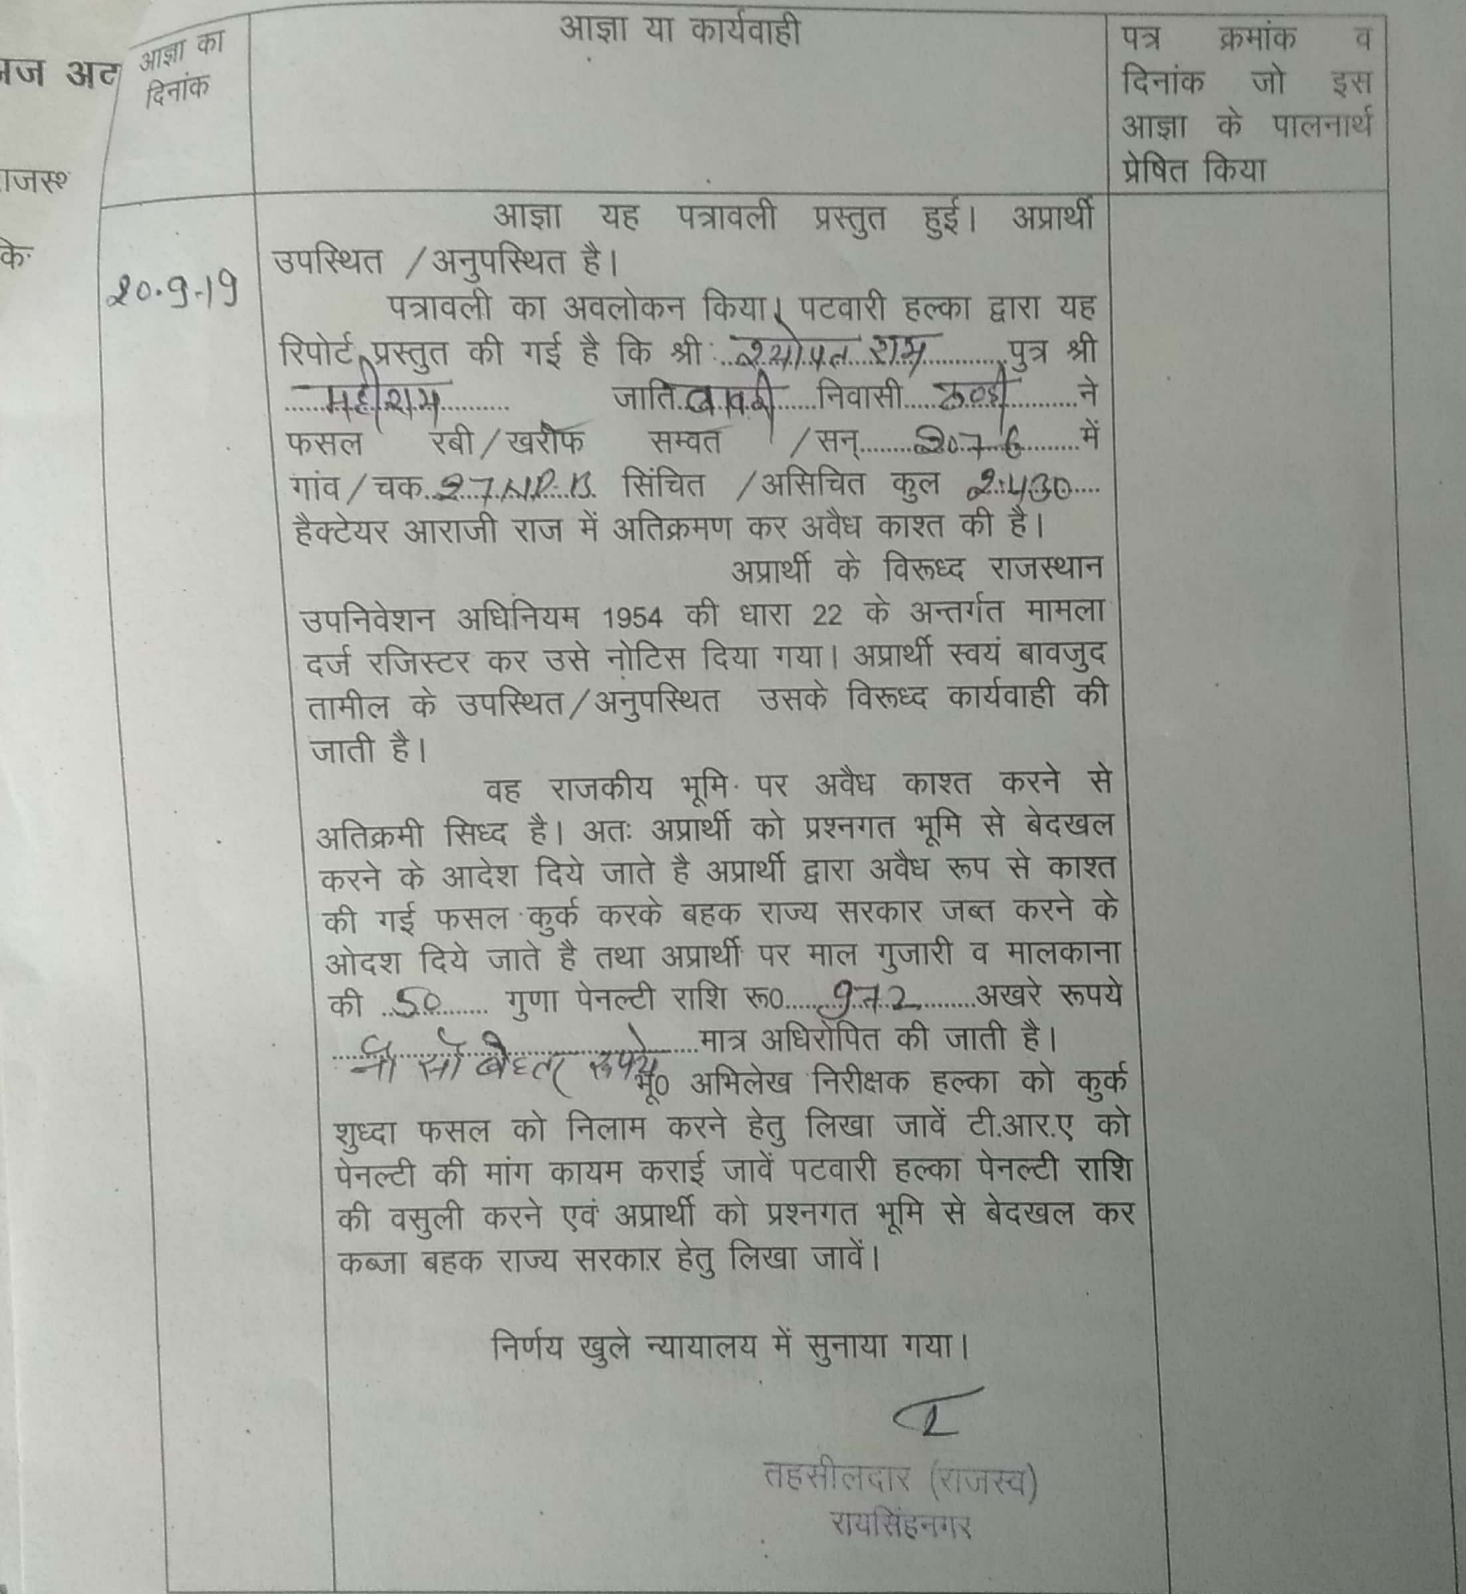 आज्ञा का
दिनांक
आज्ञा या कार्यवाही
पत्र क्रमांक व
दिनांक जो इस
आज्ञा के पालनार्थ
प्रेषित किया
20.9.19
आज्ञा यह पत्रावली प्रस्तुत हुई। अप्रार्थी
उपस्थित / अनुपस्थित है।
पत्रावली का अवलोकन किया। पटवारी हल्का द्वारा यह
रिपोर्ट प्रस्तुत की गई है कि श्री श्योपत राम पुत्र श्री
महीराम जाति बावरी निवासी ने
फसल रबी / खरीफ सम्वत / सन् 2076 में
गांव / चक 27 N.P.B. सिंचित / असिचित कुल 2.430
हैक्टेयर आराजी राज में अतिक्रमण कर अवैध काश्त की है।
अप्रार्थी के विरूध्द राजस्थान
उपनिवेशन अधिनियम 1954 की धारा 22 के अन्तर्गत मामला
दर्ज रजिस्टर कर उसे नोटिस दिया गया। अप्रार्थी स्वयं बावजुद
तामील के उपस्थित / अनुपस्थित उसके विरूध्द कार्यवाही की
जाती है।
वह राजकीय भूमि पर अवैध काश्त करने से
अतिक्रमी सिध्द है। अतः अप्रार्थी को प्रश्नगत भूमि से बेदखल
करने के आदेश दिये जाते है अप्रार्थी द्वारा अवैध रूप से काश्त
की गई फसल कुर्क करके बहक राज्य सरकार जब्त करने के
ओदश दिये जाते है तथा अप्रार्थी पर माल गुजारी व मालकाना
की 50 गुणा पेनल्टी राशि रू0 972 अखरे रूपये
नौ सौ बेहतर रूपये मात्र अधिरोपित की जाती है।
भू0 अभिलेख निरीक्षक हल्का को कुर्क
शुध्दा फसल को निलाम करने हेतु लिखा जावें टी.आर.ए को
पेनल्टी की मांग कायम कराई जावें पटवारी हल्का पेनल्टी राशि
की वसुली करने एवं अप्रार्थी को प्रश्नगत भूमि से बेदखल कर
कब्जा बहक राज्य सरकार हेतु लिखा जावें।
निर्णय खुले न्यायालय में सुनाया गया।
तहसीलदार (राजस्व)
रायसिंहनगर